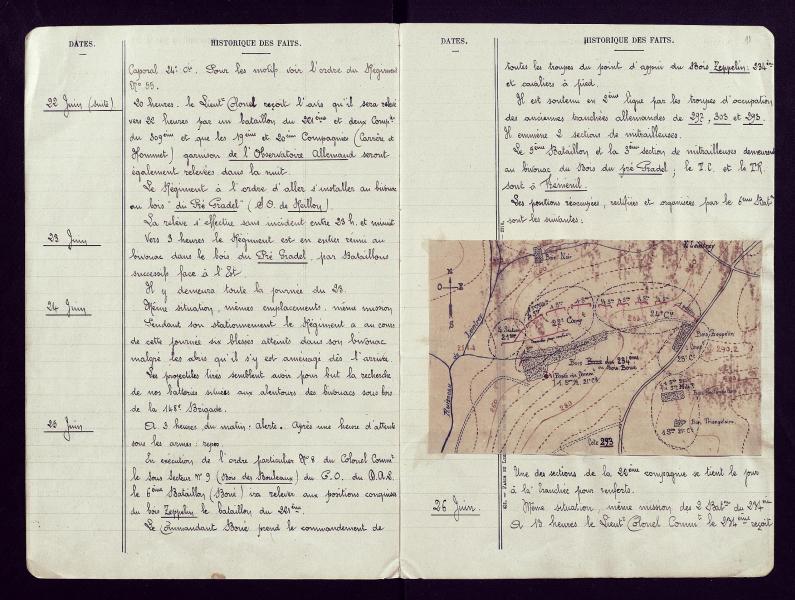 DATES.
HISTORIQUE DES FAITS.
Caporal 24e Cie. Pour les motifs voir l'ordre du Régiment
No 99.
22 Juin (suite)
20 heures. le Lieutt Colonel reçoit l'avis qu'il sera relevé
vers 22 heures par un bataillon du 221ème et deux Comp.
du 309ème et que les 19ème et 20ème Compagnies (Carrère et
Hommet) garnison de l'Observatoire Allemand seront
également relevées dans la nuit.
Le Régiment a l'ordre d'aller s'installer au bivouac
au bois "du Pré Gradel" (S.O. de Reillon).
La relève s'effectue sans incident entre 23 h. et minuit
23 Juin
Vers 3 heures le Régiment est en entier réuni au
bivouac dans le bois du Pré Gradel, par Bataillons
successifs face à l'Est.
Il y demeura toute la journée du 23.
24 Juin
Même situation, mêmes emplacements, même mission
Pendant son stationnement le Régiment a au cours
de cette journée six blessés atteints dans son bivouac
malgré les abris qu'il s'y est aménagé dès l'arrivée.
Les projectiles tirés semblent avoir pour but la recherche
de nos batteries situées aux alentours des bivouacs sous bois
de la 148e Brigade.
25 Juin
A 3 heures du matin: alerte. Après une heure d'attente
sous les armes: repos.
En exécution de l'ordre particulier No 8 du Colonel Commt
le sous Secteur No 9 (Bois des Bouleaux) du C.O. du D.A.L.
le 6ème Bataillon (Boué) ira relever aux positions conquises
du bois Zeppelin le bataillon du 221ème.
Le Commandant Boué prend le commandement de
DATES.
HISTORIQUE DES FAITS.
toutes les troupes du point d'appui du Bois Zeppelin: 234ème
et cavaliers à pied.
Il est soutenu en 2ème ligne par les troupes d'occupation
des anciennes tranchées allemandes de 297, 303 et 293.
Il emmène 2 sections de mitrailleuses.
Le 5ème Bataillon et la 3ème section de mitrailleuses demeurent
au bivouac du Bois du pré Gradel; le T.C. et le T.R.
sont à Fréménil.
Les positions réoccupées, rectifiées et organisées par le 6ème Baton
sont les suivantes:
Bois Noir
N
O
E
S
23e Comp
24e Cie
Bois Zeppelin
293.2
Bois Triangulaire
Cote 293
Une des sections de la 20ème compagnie se tient le jour
à la tranchée pour renforts.
26 Juin.
Même situation, même mission des 2 Batons du 234ème
A 13 heures le Lieutt Colonel Commt le 234ème reçoit